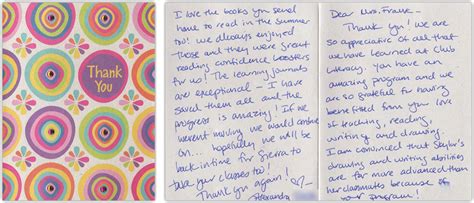 Thank
You
I love the books you send
home to read in the summer
too! We always enjoyed
those and they were great
reading confidence boosters
for us! The learning journals
are exceptional – I have
saved them all and the
progress is amazing! If we
weren't moving we would
... hopefully we will be
back in time for Sierra to
take your classes too!
Thank you again!
Alexandra
Dear Mrs.
Thank you! We are
so appreciative of all that
we have learned at Club
Literacy. You have an
amazing program and we
are so grateful for having
benefitted from your love
of teaching, reading,
writing and drawing.
I am convinced that Skylar's
drawing and writing abilities
are far more advanced than
her classmates because of
your program!